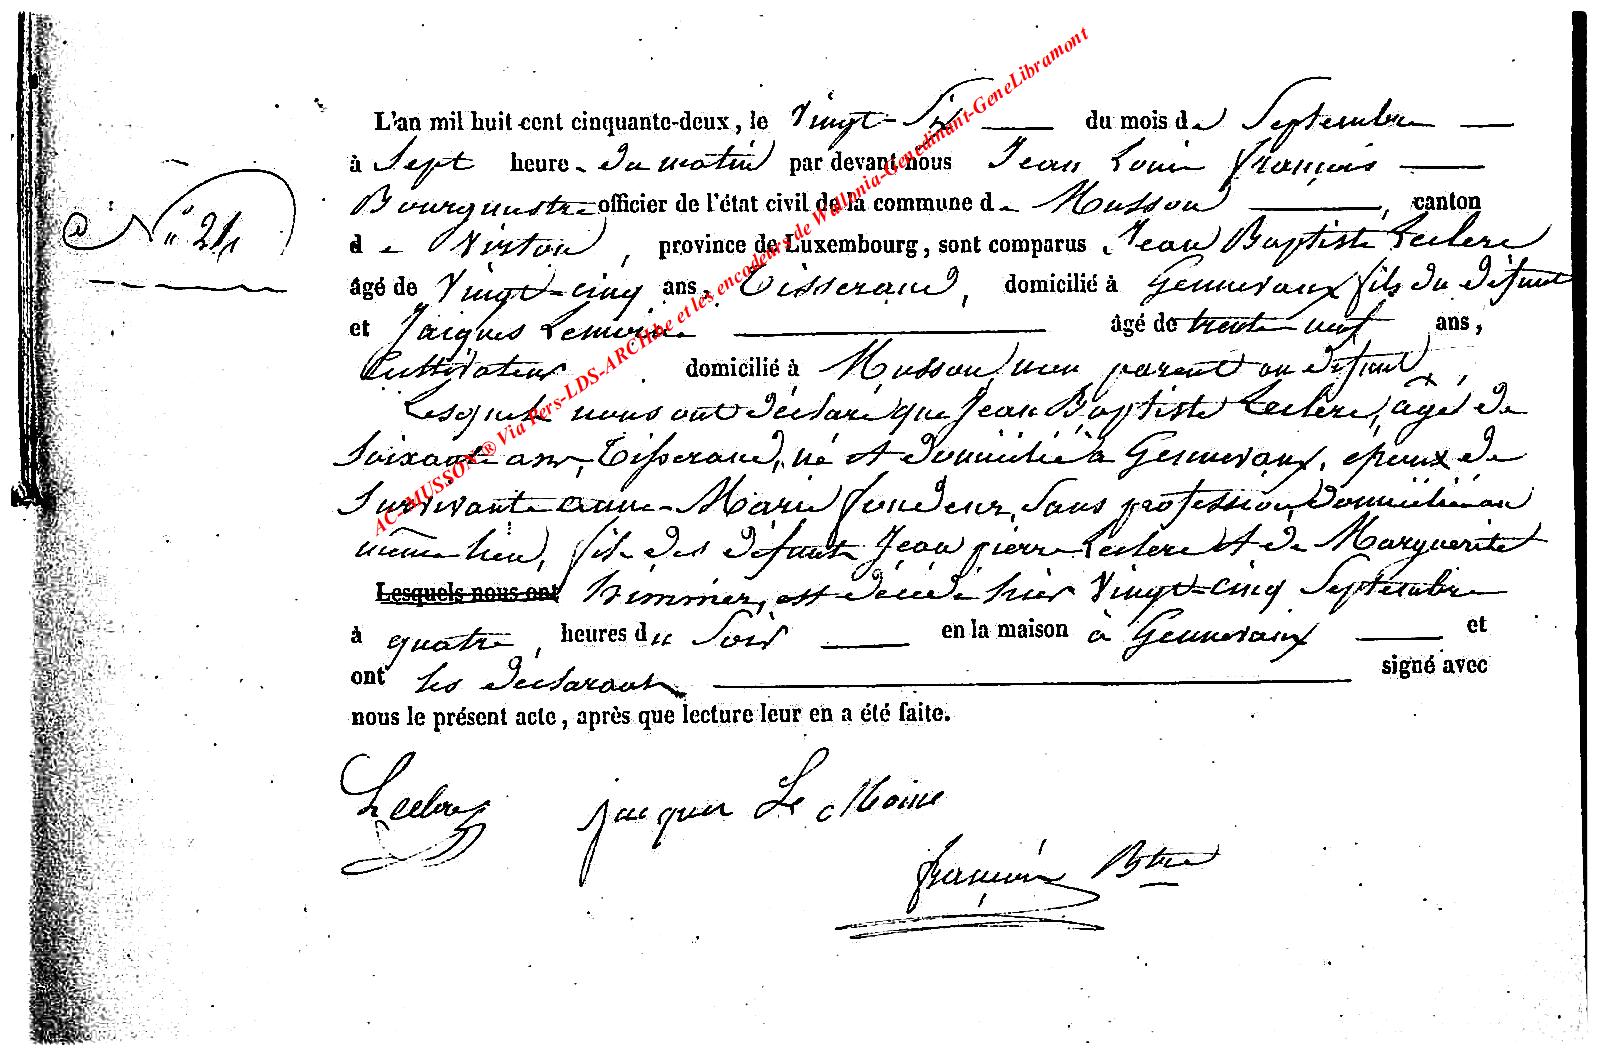 L'an mil huit cent cinquante-deux, le Vingt-Six du mois de Septembre
à Sept heure du matin par devant nous Jean Louis françois
Bourgmestre officier de l'état civil de la commune de Musson, canton
de Virton, province de Luxembourg, sont comparus Jean Baptiste Leclere
N° 24
âgé de Vingt-cinq ans, Tisserand, domicilié à Gennevaux fils du défunt
et Jacques Lemoine âgé de trente neuf ans,
Cultivateur domicilié à Musson, non parent au défunt,
Lesquels nous ont déclaré que Jean Baptiste Leclere, agé de
Soixante ans, Tisserand, né et domicilié à Gennevaux, époux de
Survivante anne-Marie fondeur, Sans profession, domiciliée au
même lieu, fils des défunts Jean pierre Leclere et de Marguerite
Lesquels nous ont himmer, est décédé hier Vingt-cinq Septembre
à quatre, heures du Soir en la maison à Gennevaux et
ont les déclarants signé avec
nous le présent acte, après que lecture leur en a été faite.
Leclere jacques Le Moine
françois Btre
AC-MUSSON® Via Pers-LDS-ARCHbe et les encodeurs de Wallonia-Genedinant-GeneLibramont